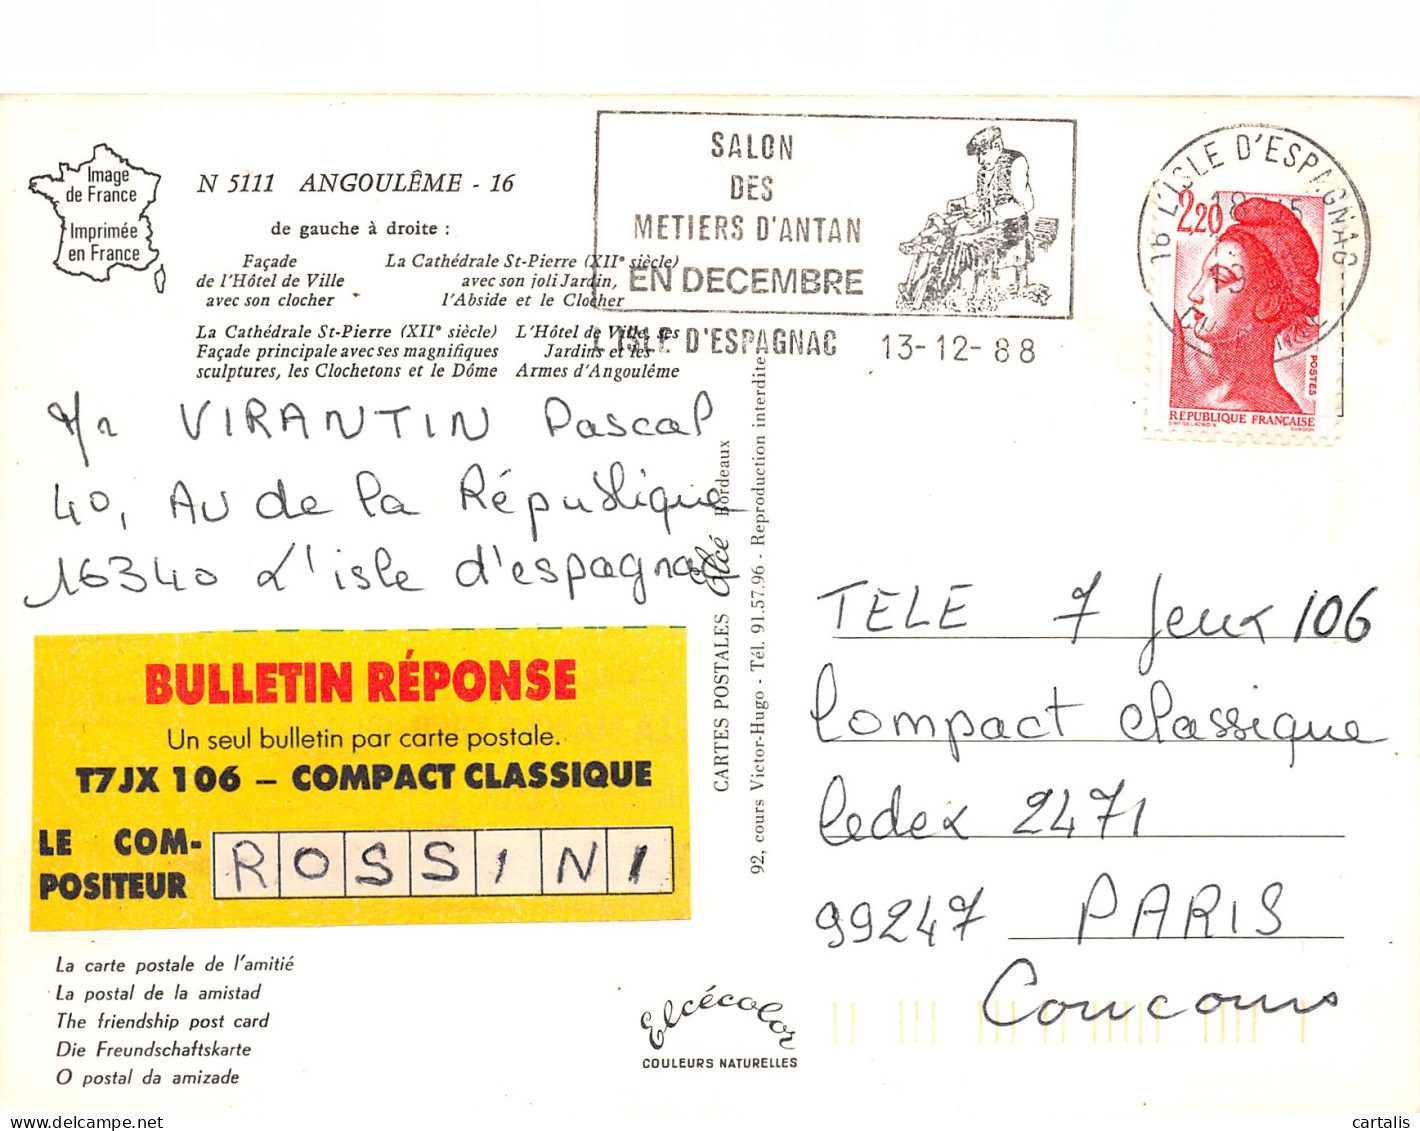 Image
de France
Imprimée
en France
N 5111 ANGOULÊME - 16
de gauche à droite :
Façade
de l'Hôtel de Ville
avec son clocher
La Cathédrale St-Pierre (XIIe siècle)
avec son joli Jardin,
l'Abside et le Clocher
La Cathédrale St-Pierre (XIIe siècle)
Façade principale avec ses magnifiques
sculptures, les Clochetons et le Dôme
L'Hôtel de Ville, ses
Jardins et les
Armes d'Angoulême
SALON
DES
METIERS D'ANTAN
EN DECEMBRE
L'ISLE D'ESPAGNAC 13-12-88
16 L'ISLE D'ESPAGNAC
2,20
POSTES
REPUBLIQUE FRANÇAISE
D'AP. DELACROIX GANDON
Mr VIRANTIN Pascal
40, Av de la République
16340 L'isle d'espagnac
BULLETIN RÉPONSE
Un seul bulletin par carte postale.
T7JX 106 – COMPACT CLASSIQUE
LE COM-
POSITEUR
ROSSINI
CARTES POSTALES Elcé Bordeaux
92, cours Victor-Hugo - Tél. 91.57.96 - Reproduction interdite
TELE 7 Jeux 106
Compact classique
Cedex 2471
99247 PARIS
Concours
La carte postale de l'amitié
La postal de la amistad
The friendship post card
Die Freundschaftskarte
O postal da amizade
Elcécolor
COULEURS NATURELLES
cartalis